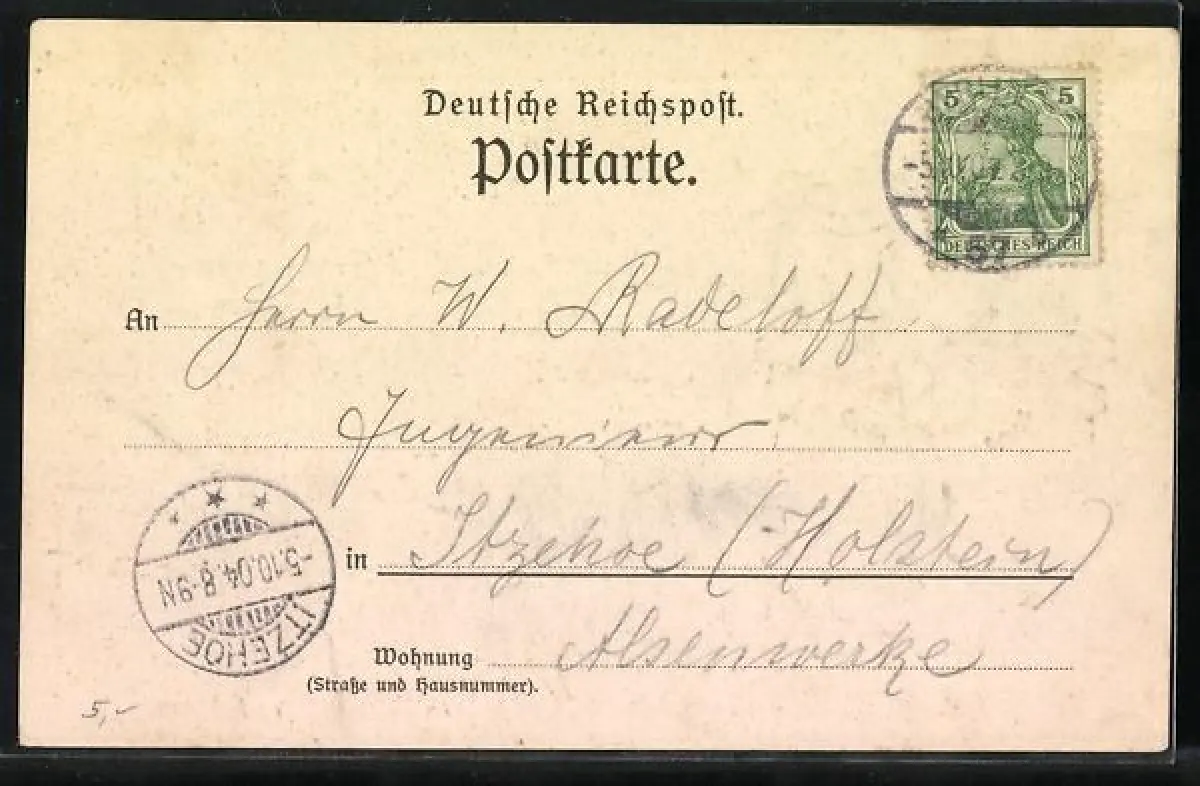 Deutsche Reichspost.
Postkarte.
5 5
DEUTSCHES REICH
57
An Herrn W. Radeloff
Ingenieur
in Itzehoe (Holstein)
Wohnung Alsenwerke
(Straße und Hausnummer).
-5.10.04.8-9N
ITZEHOE
5,-